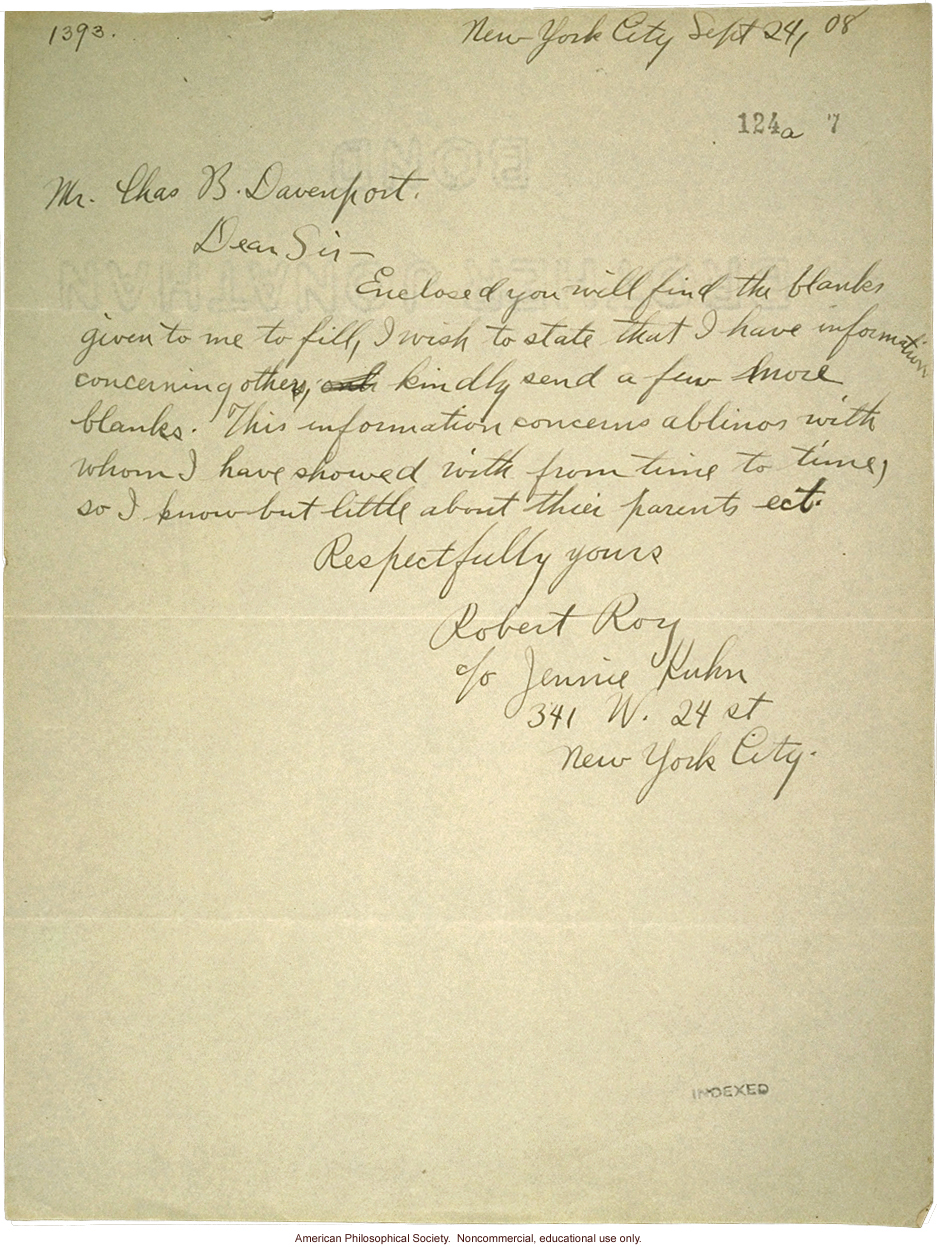 1393.
New York City Sept 24, 08
124a 7
Mr. Chas B. Davenport.
Dear Sir—
Enclosed you will find the blanks
given to me to fill, I wish to state that I have information
concerning others, kindly send a few more
blanks. This information concerns ablinos with
whom I have showed with from time to time,
so I know but little about thier parents ect.
Respectfully yours
Robert Roy
c/o Jennie Kuhn
341 W. 24 st
New York City.
INDEXED
American Philosophical Society. Noncommercial, educational use only.